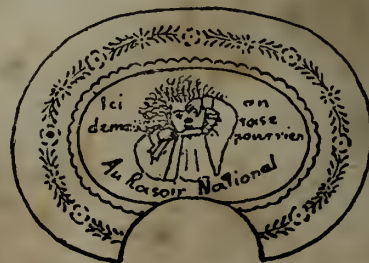 Ici on
rase
pourrien
Au Rasoir National